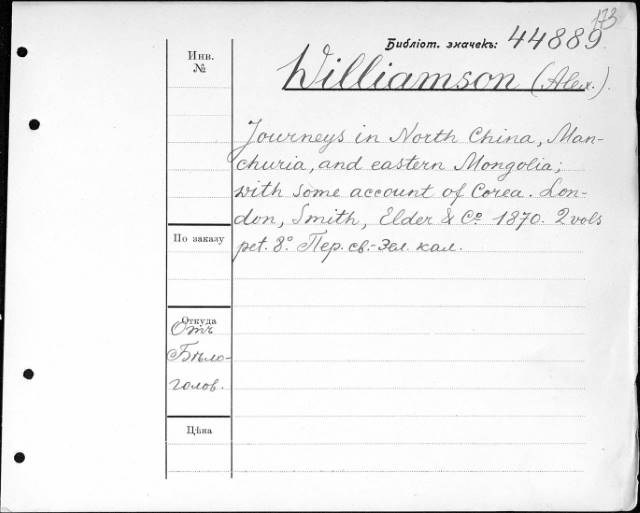 173
Библіот. значекъ: 44889
Инв.
№
Williamson (Alex.).
Journeys in North China, Man-
churia, and eastern Mongolia;
with some account of Corea. Lon-
don, Smith, Elder & Cº 1870. 2 vols
pet. 8º. Пер. св.-Зел. кал.
По заказу
Откуда
Отъ
Бѣло-
голов.
Цѣна